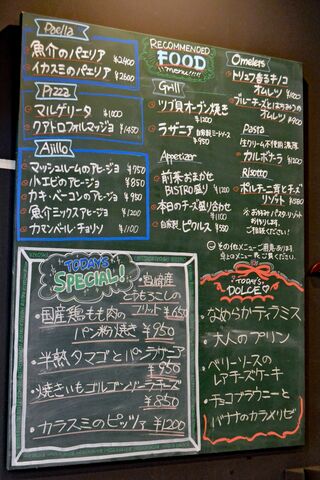 Paella
魚介のパエリア ¥2400
イカスミのパエリア ¥2600
Pizza
マルゲリータ ¥1200
クアトロフォルマッジョ ¥1450
Ajillo
マッシュルームのアヒージョ ¥750
小エビのアヒージョ ¥850
カキ・ベーコンのアヒージョ ¥950
魚介ミックスアヒージョ ¥1200
カマンベール・チョリソ ¥1100
RECOMMENDED
FOOD
menu!!!!
Grill
ツブ貝オーブン焼き
¥1200
ラザニア 自家製ミートソース
¥950
Appetizer
前菜おまかせ
BISTRO盛り ¥1200
本日のチーズ盛り合わせ
¥1100
自家製 ピクルス ¥550
Omelets
トリュフ香るキノコ
オムレツ
ブルーチーズとはちみつの
オムレツ
Pasta
生クリーム不使用濃厚
カルボナーラ
Risotto
ポルチーニ茸とチーズ
リゾット
※お好みでパスタ、リゾット
ご相談ください!
その他メニューご用意あります。
卓上のメニュー表ご覧ください。
TODAY'S
SPECIAL!
・宮崎産
とうもろこしの
フリット ¥650
・国産鶏もも肉の
パン粉焼き ¥950
・半熟タマゴとパンラザニア
¥950
・焼きいもゴルゴンゾーラチーズ
¥850
・カラスミのピッツァ ¥1200
TODAY'S
DOLCE♡
・なめらかティラミス
・大人のプリン
・ベリーソースの
レアチーズケーキ
・チョコブラウニーと
バナナのカラメリゼ